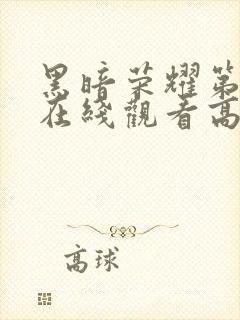 黑暗荣耀第
在线觀看高
高球